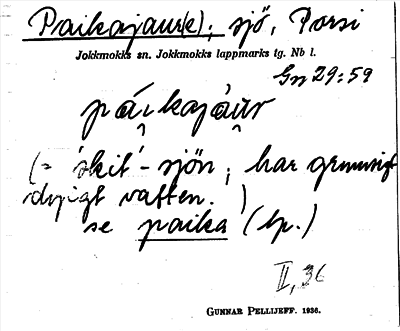 Paikajaur(e); sjö, Porsi
Jokkmokks sn. Jokkmokks lappmarks tg. Nb l.
Gn 29:59
páikajàur
(= 'skit'-sjön; har grumsigt
dyigt vatten.)
se paika (lp.)
II, 36
GUNNAR PELLIJEFF. 1936.